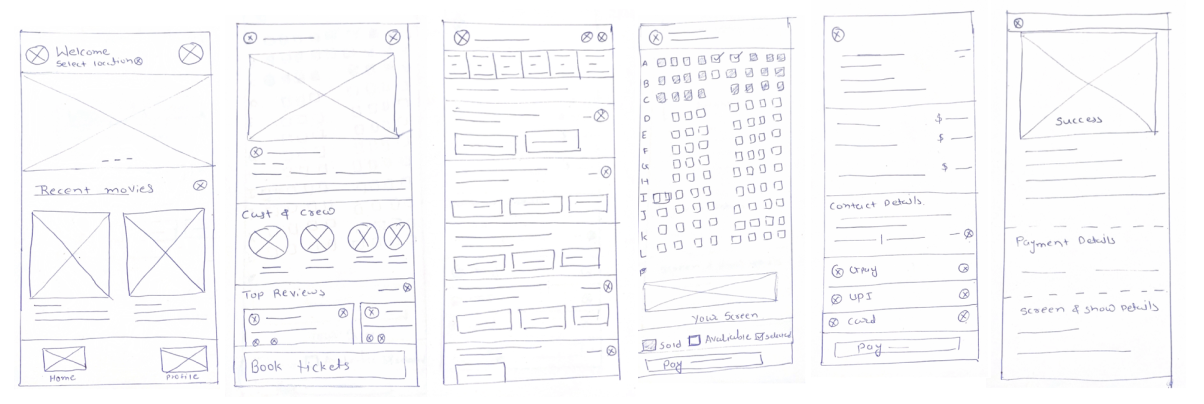 Welcome
Select location
Recent movies
Home
Profile
Cast & crew
Top Reviews
Book tickets
A
B
C
D
E
F
G
H
I
J
K
L
Your Screen
Sold
Available
Pay
$
$
$
Contact Details
Gpay
UPI
Card
Pay
Success
Payment Details
Screen & show Details